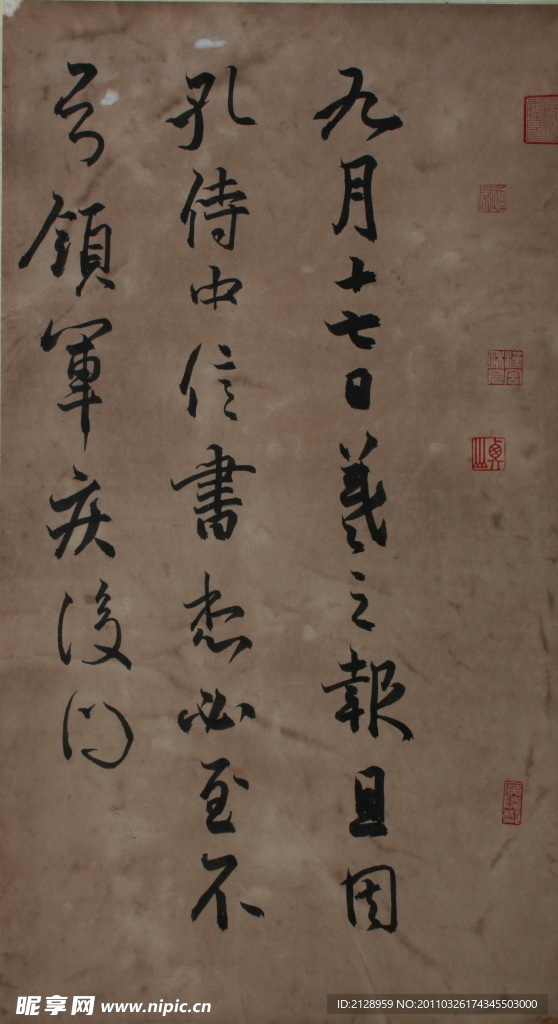 九月十七日羲之報且因
孔侍中信書想必至不
知領軍疾後問
昵享网 www.nipic.cn
ID:2128959 NO:20110326174345503000